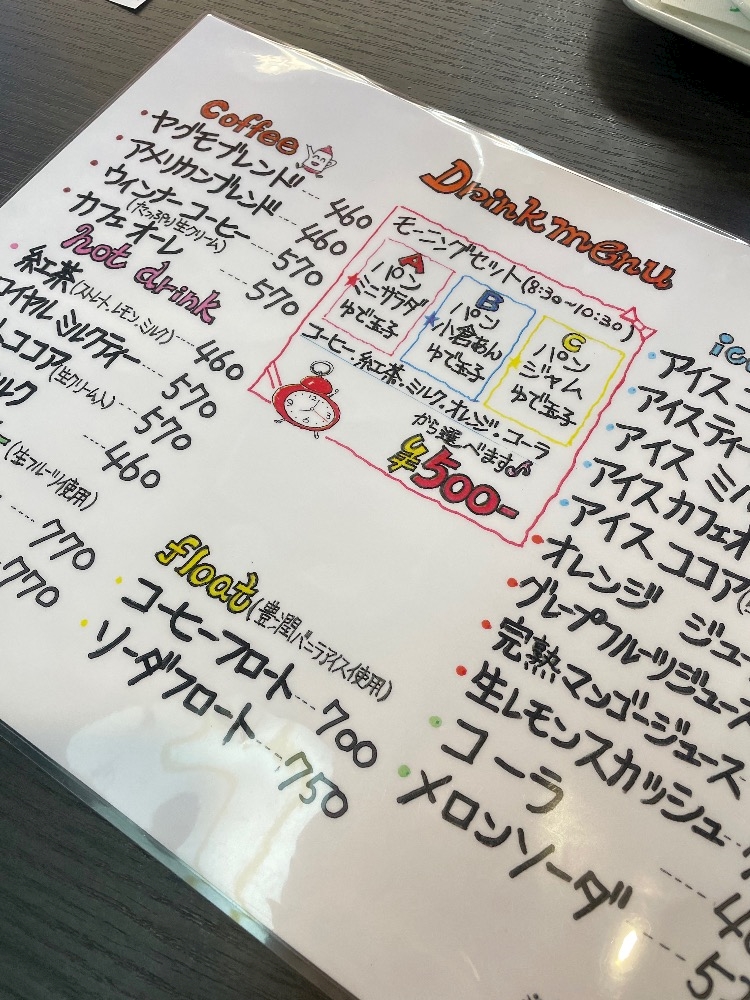 Drink menu
Coffee
ヤグモブレンド 460
アメリカンブレンド 460
ウィンナーコーヒー 570
(たっぷり生クリーム)
カフェオーレ 570
hot drink
紅茶(ストレート、レモン、ミルク) 460
ロイヤルミルクティー 570
ココア(生クリーム入) 570
ルク 460
(生フルーツ使用)
770
770
float(豊潤バニラアイス使用)
コーヒーフロート 700
ソーダフロート 750
モーニングセット(8:30~10:30)
A
パン
ミニサラダ
ゆで玉子
B
パン
小倉あん
ゆで玉子
C
パン
ジャム
ゆで玉子
コーヒー.紅茶.ミルク.オレンジ.コーラ
から選べます♪
¥500-
ice
アイスコー
アイスティー
アイスミル
アイスカフェオ
アイスココア(
オレンジジュー
グレープフルーツジュース
完熟マンゴージュース
生レモンスカッシュ
コーラ 4
メロンソーダ 5